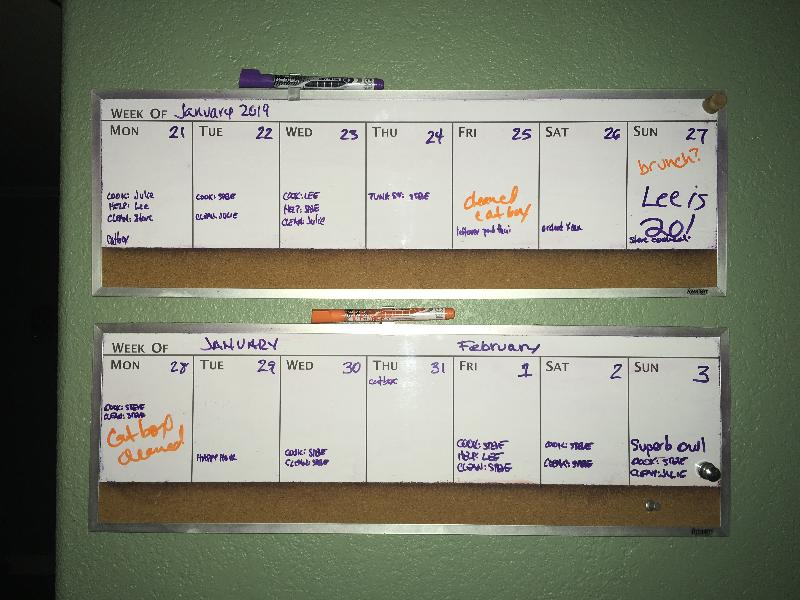 WEEK OF January 2019
MON 21 TUE 22 WED 23 THU 24 FRI 25 SAT 26 SUN 27
COOK: Julie
HELP: Lee
CLEAN: Steve
Catbox
COOK: STEVE
CLEAN: JULIE
COOK: LEE
HELP: STEVE
CLEAN: Julie
STEVE
cleaned
catbox
leftover pad thai
brunch?
Lee is
20!
WEEK OF JANUARY February
MON 28 TUE 29 WED 30 THU 31 FRI 1 SAT 2 SUN 3
COOK: STEVE
CLEAN: STEVE
Cat box
cleaned
COOK: STEVE
CLEAN: STEVE
catbox
COOK: STEVE
HELP: LEE
CLEAN: STEVE
COOK: STEVE
CLEAN: STEVE
Superb owl
COOK: STEVE
CLEAN: JULIE